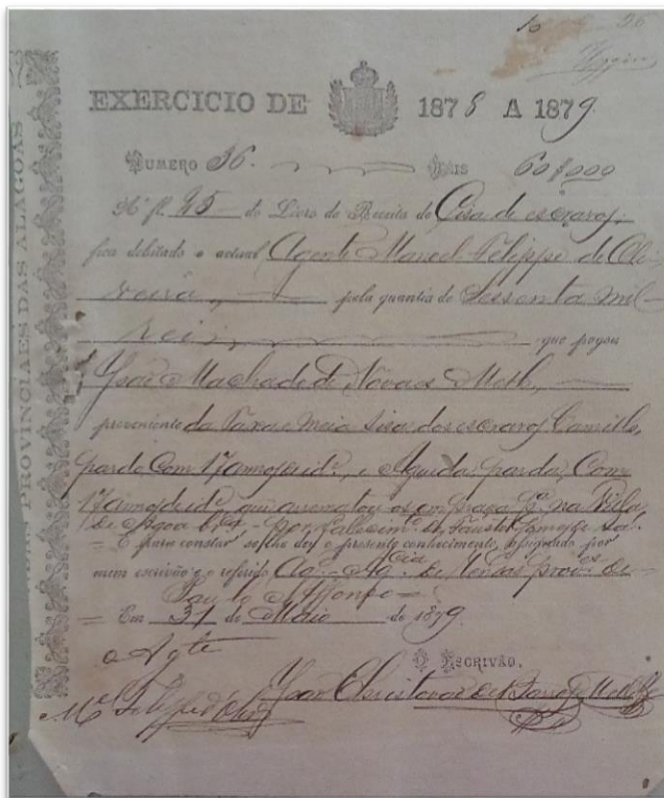 16 26
EXERCICIO DE 1878 A 1879
NUMERO 36. RÉIS 60$000
Á fl. 25 do Livro de Receita de Cisa de escravos
fica debitado o actual Agente Manoel Felippe de Oli-
veira, pela quantia de Sessenta mil
reis, que pagou
João Machado de Novaes Mello,
proveniente da Taxa e meia sisa dos escravos Camillo,
pardo, com 17 annos de id.e, e Aguida, parda, com
17 annos de id.e, que arrematou os em praça na Villa
de Agoa br.ca, por falecim.to de
= E para constar se lhe deu o presente conhecimento, assignado por
mim escrivão e o referido Ag.e Ag.cia de Rendas prov.es de
Paulo Affonso
= Em 31 de Maio de 1879
O Agte
O ESCRIVÃO,
M.el Felippe d'Olivr.a João Christovão de Mello
PROVINCIAES DAS ALAGOAS